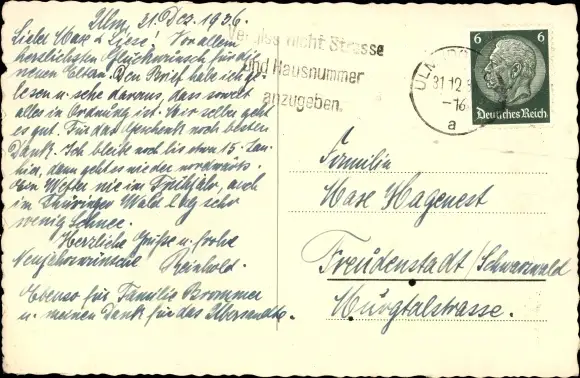 Ulm, 31. Dez. 1936.
Lieber Max u. Liese! Vor allem
herzlichsten Glückwunsch für die
neuen Eltern. Den Brief habe ich ge-
lesen u. sehe daraus, dass soweit
alles in Ordnung ist. Mir selber geht
es gut. Für das Geschenk noch besten
Dank. Ich bleibe noch bis etwa 15. Jan-
hier, dann geht es wieder nordwärts.
Ein Wetter wie im Frühjahr, auch
im Thüringer Wald lag sehr
wenig Schnee.
Herzliche Grüße u. frohe
Neujahrswünsche Reinhold.
Ebenso für Familie Brommer
u. meinen Dank für das Übersandte.
Vergiss nicht Strasse
und Hausnummer
anzugeben.
ULM
31 12
-16
a
6 6
Deutsches Reich
Familie
Max Hagenest
Freudenstadt/Schwarzwald
Murgtalstrasse.